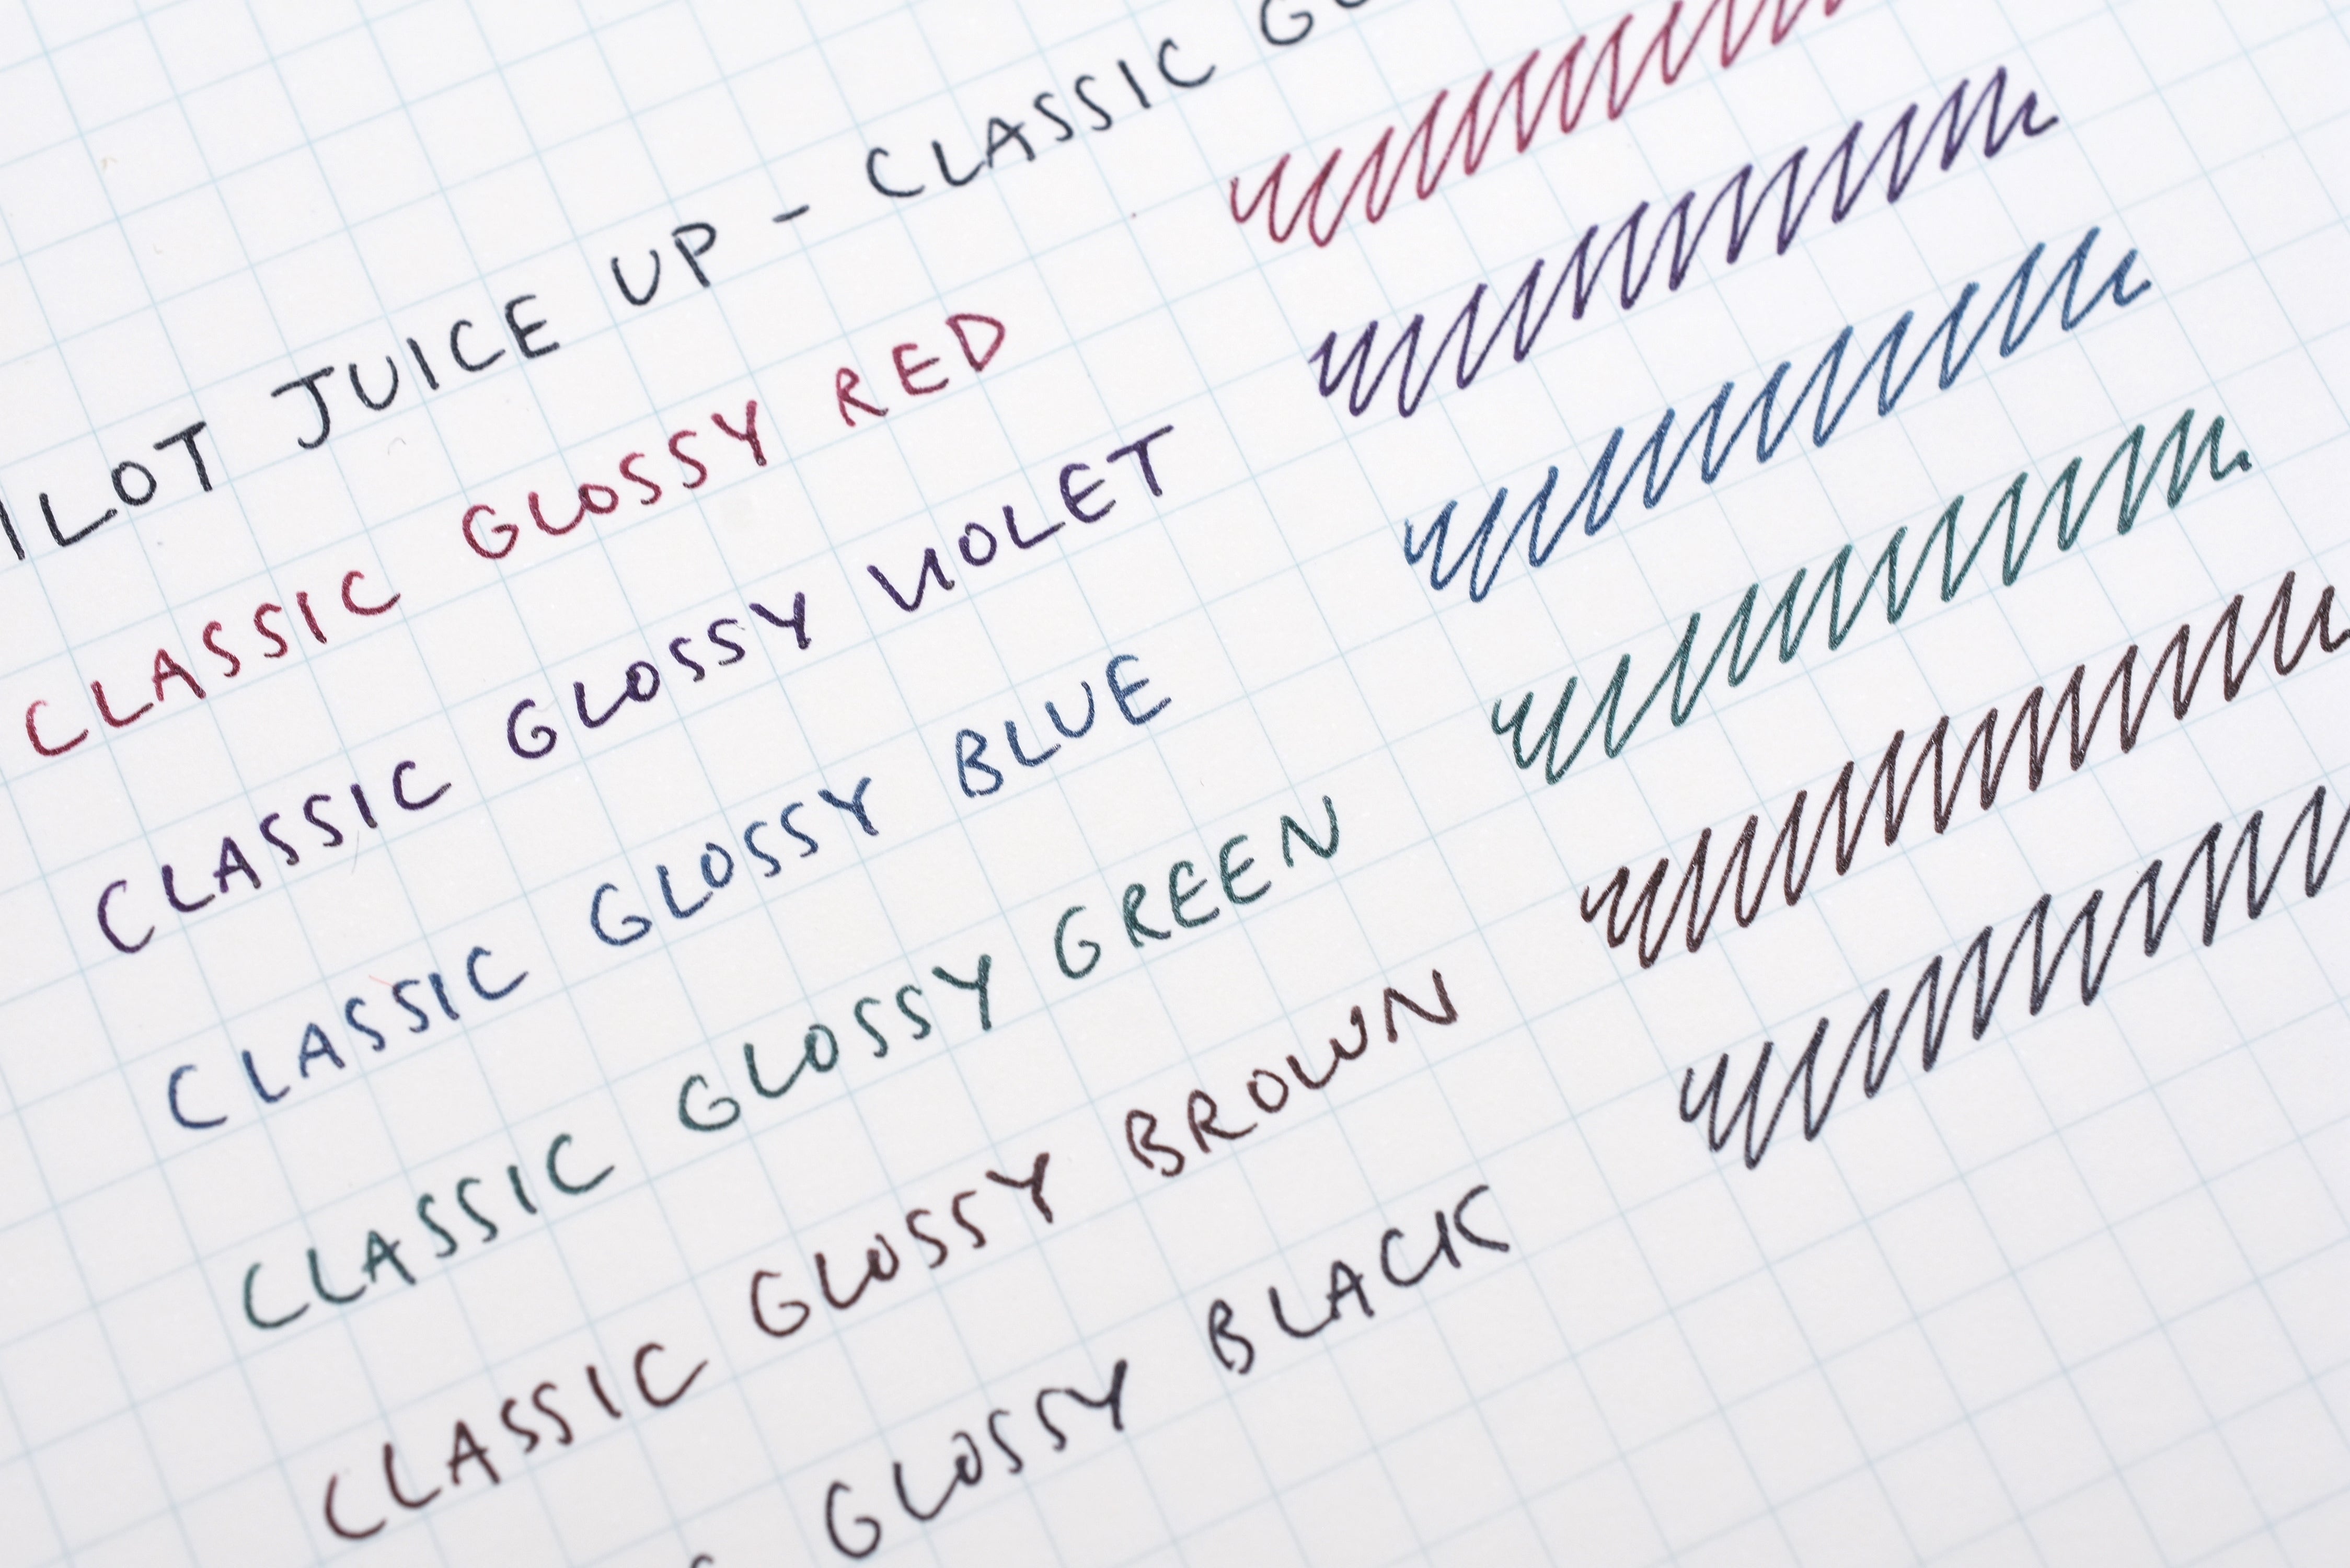 ILOT JUICE UP - CLASSIC
CLASSIC GLOSSY RED
CLASSIC GLOSSY VIOLET
CLASSIC GLOSSY BLUE
CLASSIC GLOSSY GREEN
CLASSIC GLOSSY BROWN
GLOSSY BLACK